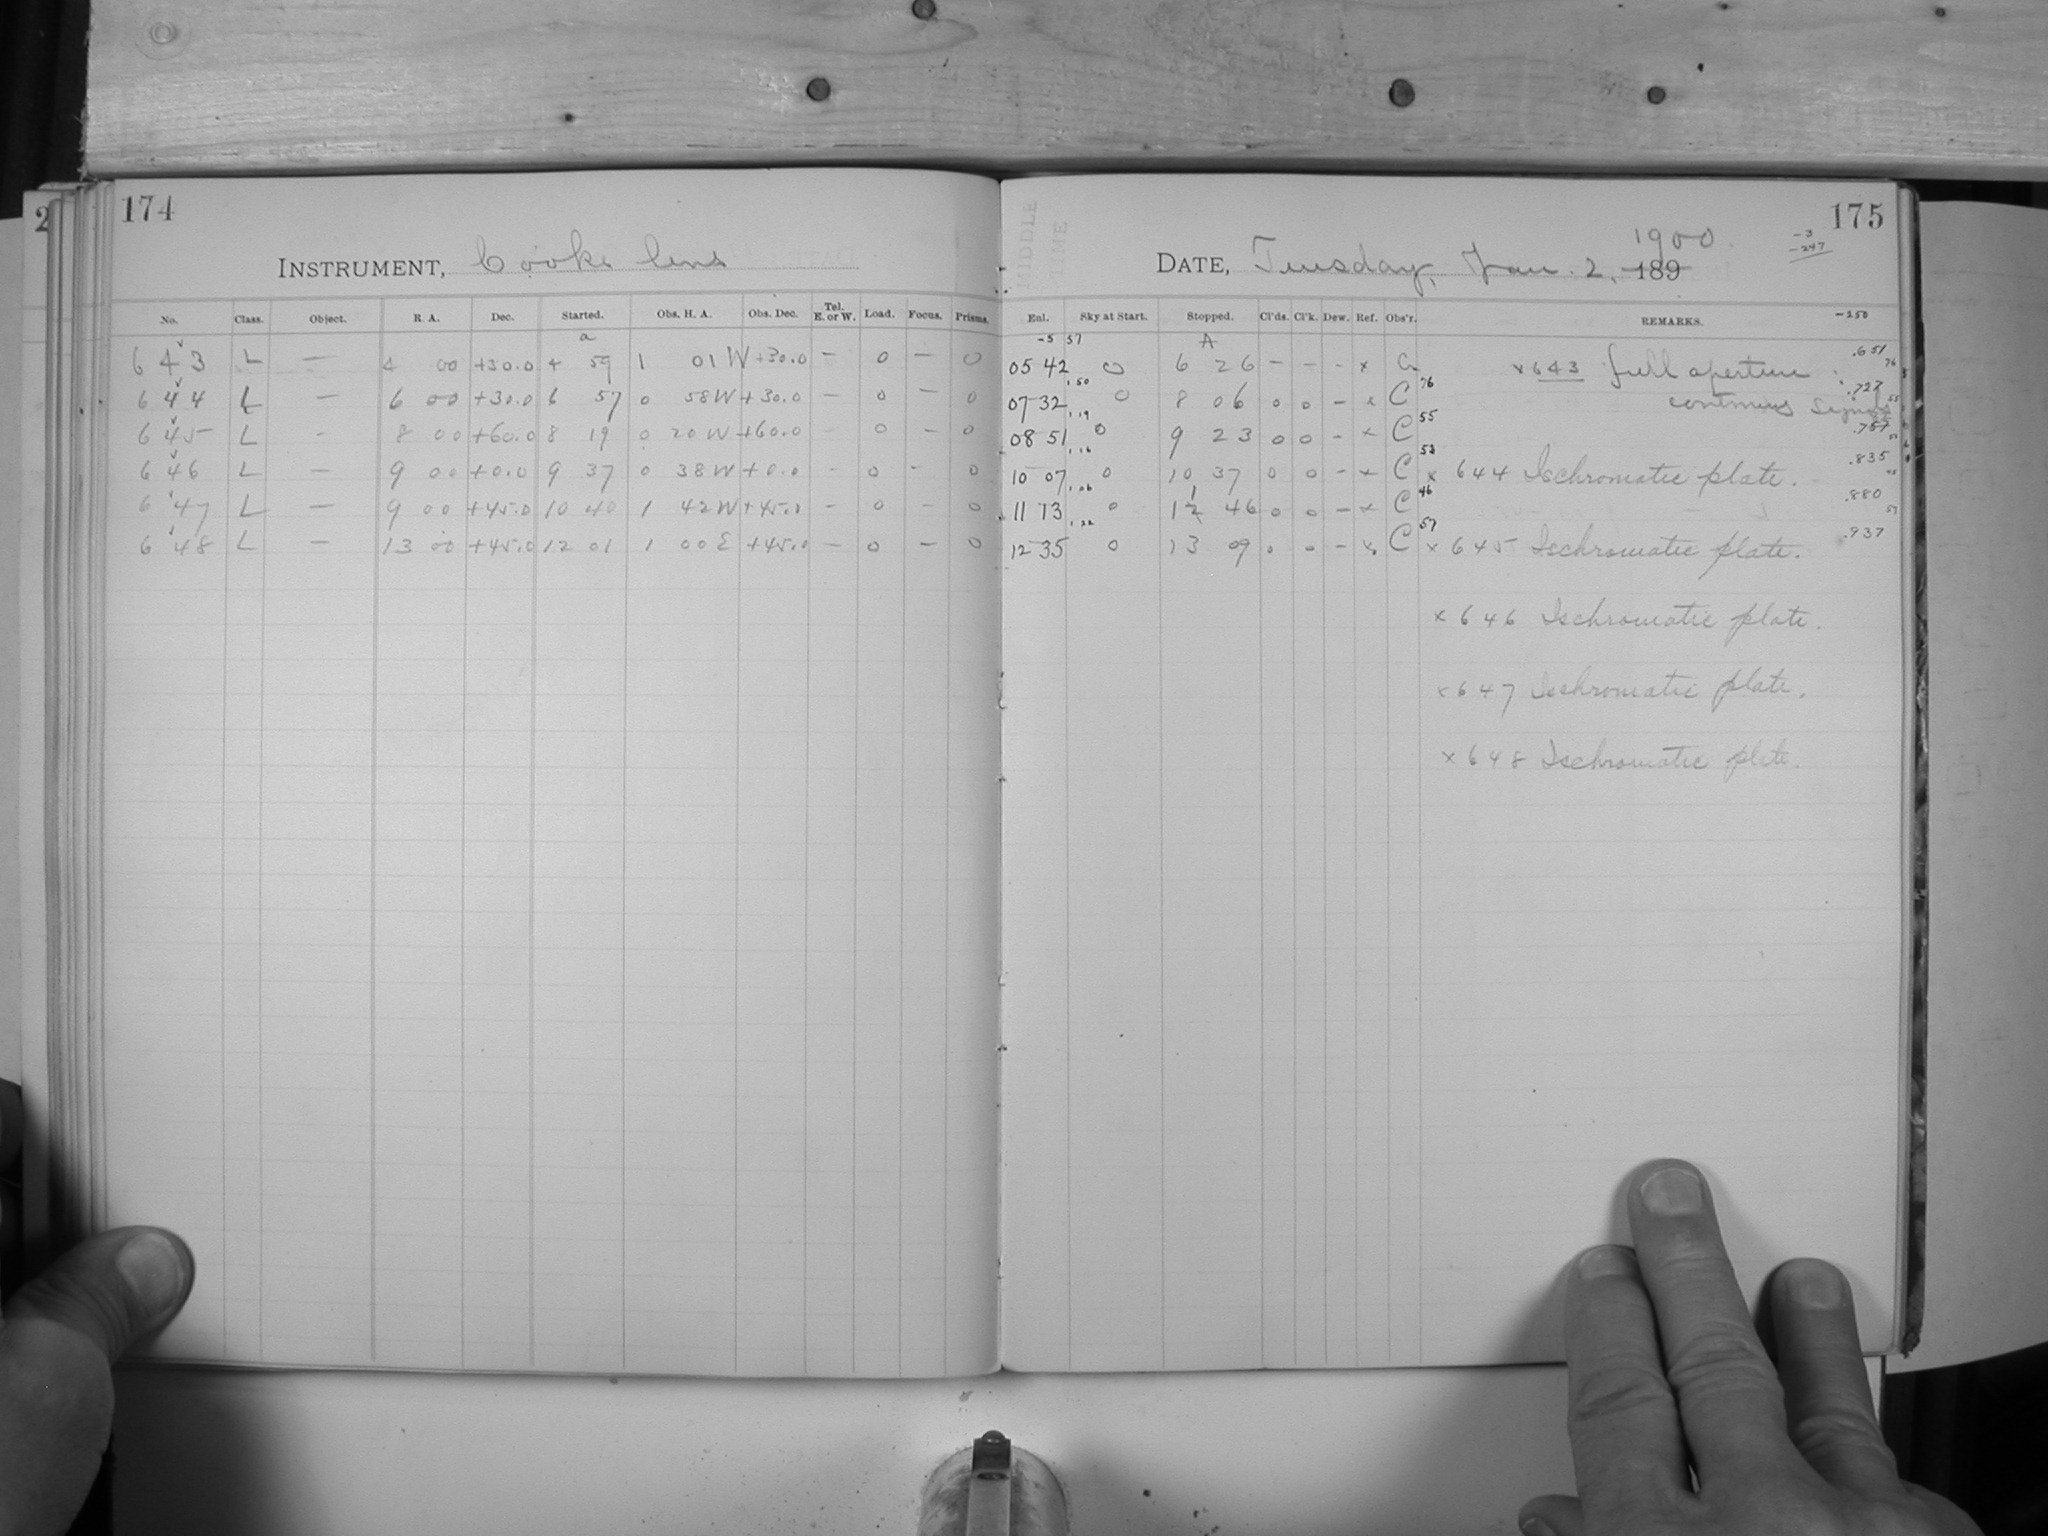 2
174
INSTRUMENT, Cooke lens
No. Class. Object. R. A. Dec. Started. Obs. H. A. Obs. Dec. Tel. E. or W. Load. Focus. Prisms.
a
643 L — 4 00 +30.0 4 59 1 01 W +30.0 — 0 — 0
644 L — 6 00 +30.0 6 57 0 58 W +30.0 — 0 — 0
645 L - 8 00 +60.0 8 19 0 20 W +60.0 - 0 - 0
646 L — 9 00 +0.0 9 37 0 38 W +0.0 - 0 - 0
647 L — 9 00 +45.0 10 40 1 42 W +45.0 - 0 - 0
648 L — 13 00 +45.0 12 01 1 00 E +45.0 — 0 — 0
175
1900
-3
-247
DATE, Tuesday, Jan. 2, 189
Enl. Sky at Start. Stopped. Cl'ds. Cl'k. Dew. Ref. Obs'r. REMARKS. -250
-5 57 A
05 42 0 6 26 — — - x ×643 full aperture : .651
76
1.50 76
07 32 0 8 06 0 0 - x C continuous .727
55
1.19 55
08 51 0 9 23 0 0 - x C .787
1.16 53
10 07 0 10 37 0 0 - x C × 644 Ischromatic plate. .835
1.06 1 46
11 13 0 12 46 0 0 - x C .880
57
1.22 57
12 35 0 13 09 0 0 - x. C × 645 Ischromatic plate. .937
× 646 Ischromatic plate.
×647 Ischromatic plate.
×648 Ischromatic plate.